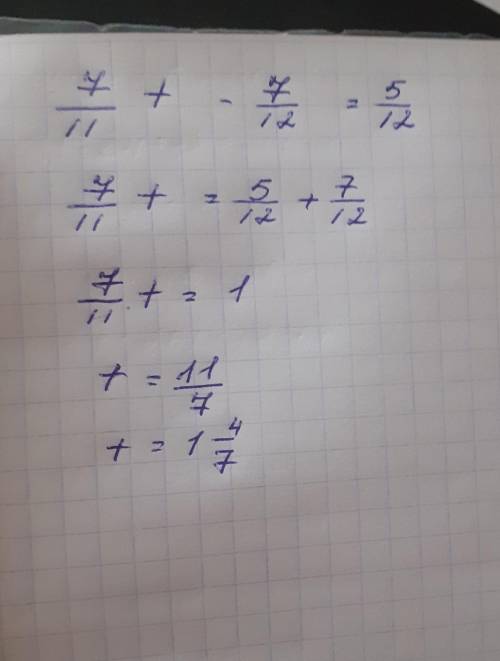 7/11 t - 7/12 = 5/12
7/11 t = 5/12 + 7/12
7/11 t = 1
t = 11/7
t = 1 4/7